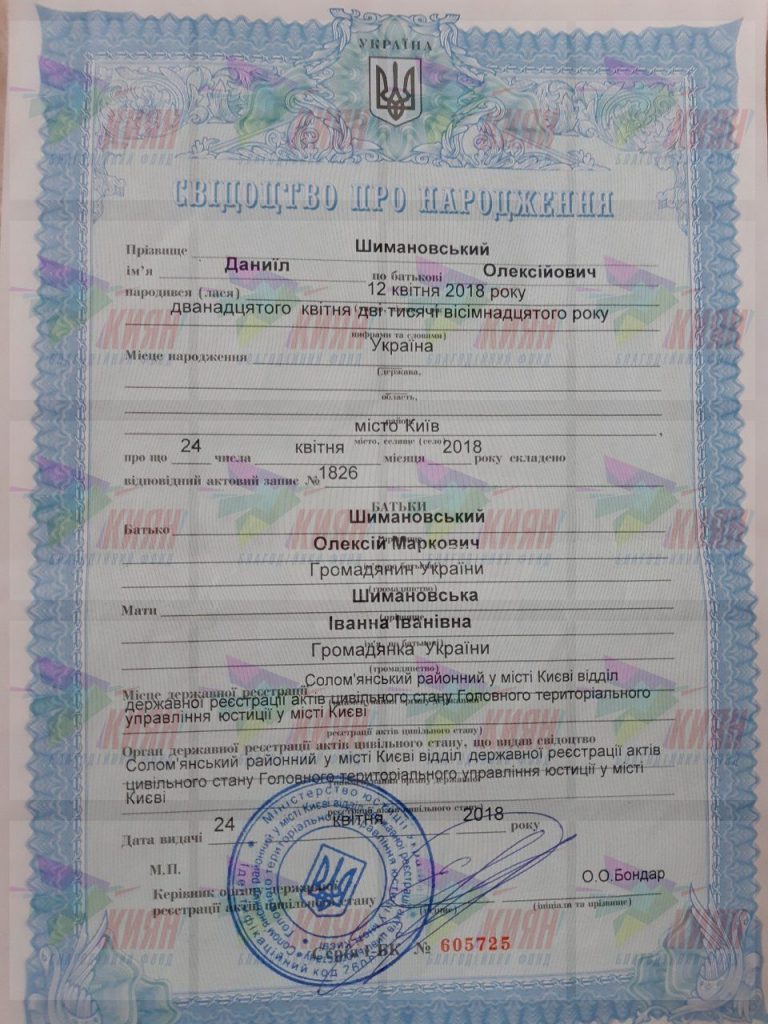 УКРАЇНА
СВІДОЦТВО ПРО НАРОДЖЕННЯ
Прізвище Шимановський
ім'я Даниїл по батькові Олексійович
народився (лася) 12 квітня 2018 року
дванадцятого квітня дві тисячі вісімнадцятого року
цифрами та словами)
Місце народження Україна
(держава,
область,
район,
місто Київ ,
місто, селище (село)
про що 24 числа квітня місяця 2018 року складено
відповідний актовий запис № 1826
БАТЬКИ
Батько Шимановський
Олексій Маркович
Громадянин України
(громадянство)
Мати Шимановська
Іванна Іванівна
Громадянка України
(громадянство)
Місце державної реєстрації Солом'янський районний у місті Києві відділ
державної реєстрації актів цивільного стану Головного територіального
управління юстиції у місті Києві
реєстрації актів цивільного стану)
Орган державної реєстрації актів цивільного стану, що видав свідоцтво
Солом'янський районний у місті Києві відділ державної реєстрації актів
цивільного стану Головного територіального управління юстиції у місті
Києві
Дата видачі 24 квітня 2018 року
М.П.
О.О.Бондар
Керівник органу державної
реєстрації актів цивільного стану
(ініціали та прізвище)
Серія І-БК № 605725
КИЯН
БЛАГОДІЙНИЙ ФОНД